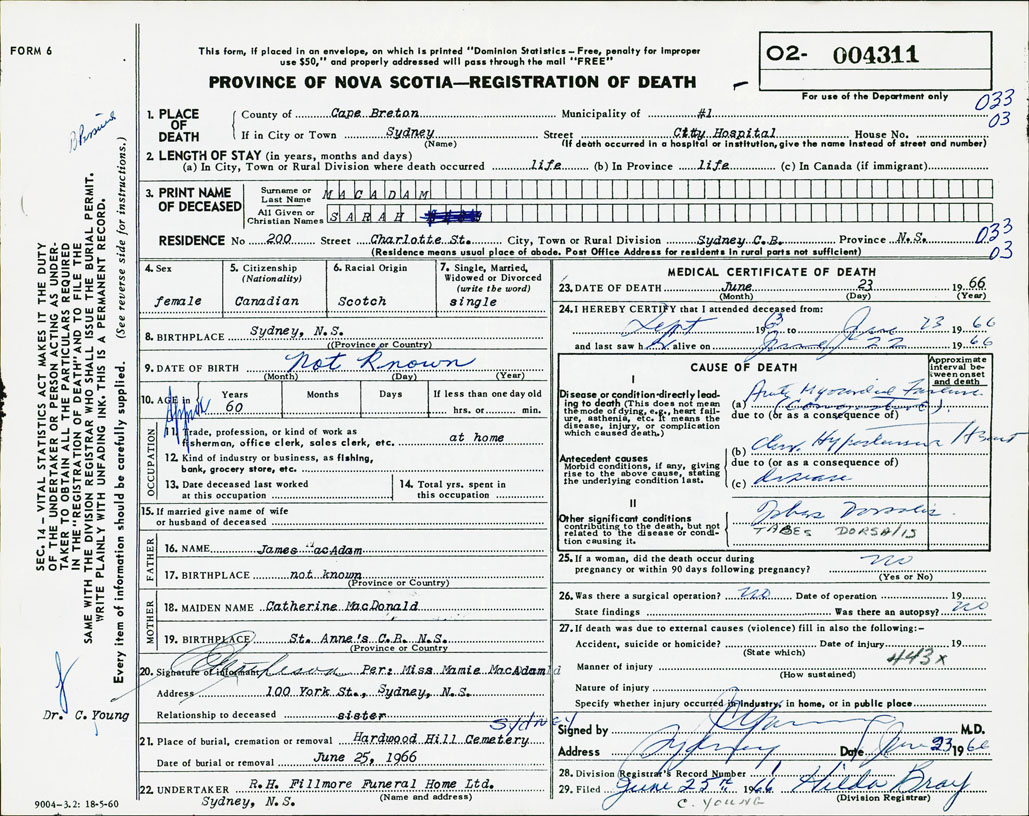 FORM 6
This form, if placed in an envelope, on which is printed "Dominion Statistics – Free, penalty for improper
use $50," and properly addressed will pass through the mail "FREE"
PROVINCE OF NOVA SCOTIA—REGISTRATION OF DEATH
O2- 004311
For use of the Department only
033
03
1. PLACE OF DEATH
County of Cape Breton Municipality of #1
If in City or Town Sydney Street City Hospital House No.
(Name) (If death occurred in a hospital or institution, give the name instead of street and number)
2. LENGTH OF STAY (in years, months and days)
(a) In City, Town or Rural Division where death occurred life (b) In Province life (c) In Canada (if immigrant)
3. PRINT NAME OF DECEASED
Surname or Last Name MACADAM
All Given or Christian Names SARAH
RESIDENCE No 200 Street Charlotte St. City, Town or Rural Division Sydney C.B. Province N.S.
(Residence means usual place of abode. Post Office Address for residents in rural parts not sufficient)
033
03
4. Sex
female
5. Citizenship
(Nationality)
Canadian
6. Racial Origin
Scotch
7. Single, Married,
Widowed or Divorced
(write the word)
single
8. BIRTHPLACE Sydney, N.S.
((Province or Country)
9. DATE OF BIRTH Not Known
(Month) (Day) (Year)
10. AGE in Approx
Years 60 Months Days If less than one day old
hrs. or min.
OCCUPATION
11. Trade, profession, or kind of work as
fisherman, office clerk, sales clerk, etc. at home
12. Kind of industry or business, as fishing,
bank, grocery store, etc.
13. Date deceased last worked
at this occupation
14. Total yrs. spent in
this occupation
15. If married give name of wife
or husband of deceased
FATHER
16. NAME James MacAdam
17. BIRTHPLACE not known
(Province or Country)
MOTHER
18. MAIDEN NAME Catherine MacDonald
19. BIRTHPLACE St. Anne's C.B. N.S.
(Province or Country)
20. Signature of informant Per: Miss Mamie MacAdam
Address 100 York St., Sydney, N.S.
Relationship to deceased sister
21. Place of burial, cremation or removal Hardwood Hill Cemetery Sydney
Date of burial or removal June 25, 1966
22. UNDERTAKER R.H. Fillmore Funeral Home Ltd.
(Name and address)
Sydney, N.S.
MEDICAL CERTIFICATE OF DEATH
23. DATE OF DEATH June 23 1966
(Month) (Day) (Year)
24. I HEREBY CERTIFY that I attended deceased from:
Sept 1963 to June 23 1966
and last saw h alive on June 22 1966
CAUSE OF DEATH
Approximate interval between onset and death
I
Disease or condition directly leading to death (This does not mean
the mode of dying, e.g., heart failure, asthenia, etc. It means the
disease, injury, or complication
which caused death.)
(a) Myocardial Failure
due to (or as a consequence of)
Antecedent causes
Morbid conditions, if any, giving
rise to the above cause, stating
the underlying condition last.
(b) Hypertension Heart
due to (or as a consequence of)
(c) disease
II
Other significant conditions
contributing to the death, but not
related to the disease or condition causing it.
Tabes Dorsalis
TABES DORSALIS
25. If a woman, did the death occur during
pregnancy or within 90 days following pregnancy? no
(Yes or No)
26. Was there a surgical operation? no Date of operation 19
State findings Was there an autopsy? no
27. If death was due to external causes (violence) fill in also the following:–
Accident, suicide or homicide? Date of injury 19
(State which)
443x
Manner of injury
(How sustained)
Nature of injury
Specify whether injury occurred in industry, in home, or in public place
Signed by C Young M.D.
Address Sydney Date June 23 1966
28. Division Registrar's Record Number
29. Filed June 25th 1966 Hilda Bray
(Division Registrar)
C. YOUNG
SEC. 14 – VITAL STATISTICS ACT MAKES IT THE DUTY
OF THE UNDERTAKER OR PERSON ACTING AS UNDERTAKER TO OBTAIN ALL THE PARTICULARS REQUIRED
IN THE "REGISTRATION OF DEATH" AND TO FILE THE
SAME WITH THE DIVISION REGISTRAR WHO SHALL ISSUE THE BURIAL PERMIT.
WRITE PLAINLY WITH UNFADING INK. THIS IS A PERMANENT RECORD.
Every item of information should be carefully supplied. (See reverse side for instructions.)
Dr. C. Young
9004-3.2: 18-5-60